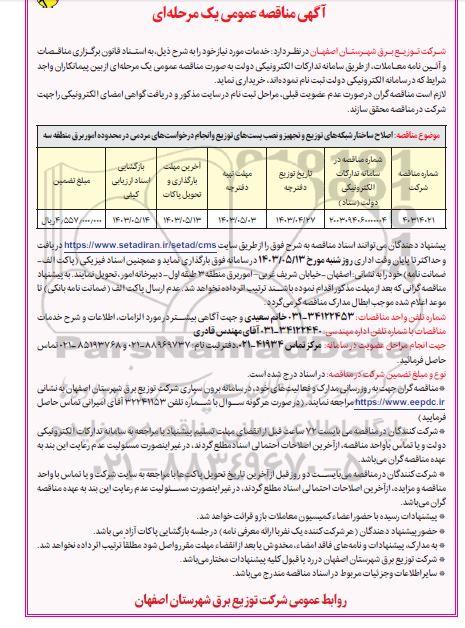 آگهی مناقصه عمومی یک مرحله‌ای
شرکت توزیع برق شهرستان اصفهان در نظر دارد: خدمات مورد نیاز خود را به شرح ذیل، به استناد قانون برگزاری مناقصات
و آئین نامه معاملات، از طریق سامانه تدارکات الکترونیکی دولت به صورت مناقصه عمومی یک مرحله‌ای از بین پیمانکاران واجد
شرایط که در سامانه الکترونیکی دولت ثبت نام نموده‌اند، خریداری نماید.
لازم است مناقصه گران در صورت عدم عضویت قبلی، مراحل ثبت نام در سایت مذکور و دریافت گواهی امضای الکترونیکی را جهت
شرکت در مناقصه محقق سازند.
موضوع مناقصه: اصلاح ساختار شبکه‌های توزیع و تجهیز و نصب پست‌های توزیع و انجام درخواست‌های مردمی در محدوده امور برق منطقه سه
شماره مناقصه شرکت | شماره مناقصه در سامانه تدارکات الکترونیکی دولت (ستاد) | تاریخ توزیع دفترچه | مهلت تهیه دفترچه | آخرین مهلت بارگذاری و تحویل پاکات | بازگشایی اسناد ارزیابی کیفی | مبلغ تضمین
۴۰۳۱۴۰۲۱ | ۲۰۰۳۰۹۴۰۶۰۰۰۰۰۴ | ۱۴۰۳/۰۴/۲۷ | ۱۴۰۳/۰۵/۰۳ | ۱۴۰۳/۰۵/۱۳ | ۱۴۰۳/۰۵/۱۴ | ۴,۵۵۷,۰۰۰,۰۰۰ ریال
پیشنهاد دهندگان می‌توانند اسناد مناقصه به شرح فوق را از طریق سایت https://www.setadiran.ir/setad/cms دریافت
و حداکثر تا پایان وقت اداری روز شنبه مورخ ۱۴۰۳/۰۵/۱۳ در سامانه فوق بارگذاری نماید و همچنین اسناد فیزیکی (پاکت الف-
ضمانت نامه) خود را به نشانی: اصفهان - خیابان شریف غربی - امور برق منطقه ۳ طبقه اول - دبیرخانه امور، تحویل نمایند. به پیشنهاد
مناقصه گرانی که بعد از مهلت مذکور اقدام نموده باشند ترتیب اثر داده نخواهد شد. عدم ارسال پاکت الف (ضمانت نامه بانکی) تا
موعد اعلام شده موجب ابطال مدارک مناقصه گر می‌گردد.
شماره تلفن واحد مناقصات: ۳۴۱۲۲۴۵۳-۰۳۱ خانم سعیدی و جهت آگاهی بیشتر در مورد الزامات، اطلاعات و شرح خدمات
مناقصات با شماره تلفن اداره مهندسی: ۳۴۱۲۲۴۴۰-۰۳۱ آقای مهندس قادری
جهت انجام مراحل عضویت در سامانه: مرکز تماس ۴۱۹۳۴-۰۲۱، دفتر ثبت نام: ۸۸۹۶۹۷۳۷-۰۲۱ و ۸۵۱۹۳۷۶۸-۰۲۱ تماس
حاصل فرمائید.
نوع و مبلغ تضمین شرکت در مناقصه: در اسناد درج شده است.
* مناقصه گران جهت به روزرسانی مدارک و فعالیت‌های خود، در سامانه برون سپاری شرکت توزیع برق شهرستان اصفهان به نشانی
https://www.eepdc.ir مراجعه نمایند. (در صورت هرگونه سوال با شماره تلفن ۳۲۲۴۱۱۵۳ آقای امیرانی تماس حاصل
فرمایید)
* شرکت کنندگان در مناقصه می بایست ۷۲ ساعت قبل از انقضای مهلت تسلیم پیشنهاد با مراجعه به سامانه تدارکات الکترونیکی
دولت و یا تماس با واحد مناقصه، از آخرین اصلاحات احتمالی اسناد مطلع گردند، در غیر اینصورت مسئولیت عدم رعایت این بند به
عهده مناقصه گران می‌باشد.
* شرکت کنندگان در مناقصه می‌بایست دو روز قبل از آخرین تاریخ تحویل پاکت‌ها با مراجعه به سایت شرکت و یا تماس با واحد
مناقصه و مزایده، از آخرین اصلاحات احتمالی اسناد مطلع گردند، در غیر اینصورت مسئولیت عدم رعایت این بند به عهده مناقصه
گران می‌باشد.
* پیشنهادات رسیده با حضور اعضاء کمیسیون معاملات باز و قرائت خواهد شد.
* حضور پیشنهاد دهندگان (هر شرکت کننده یک نفر با ارائه معرفی نامه) در جلسه بازگشایی پاکات آزاد می باشد.
* به مدارک، پیشنهادات و نامه‌های فاقد امضاء، مخدوش یا بعد از انقضاء مهلت مقرر واصل شود مطلقا ترتیب اثر داده نخواهد شد.
* شرکت توزیع برق شهرستان اصفهان در رد یا قبول کلیه پیشنهادات مختار می‌باشد.
* سایر اطلاعات و جزئیات مربوط در اسناد مناقصه مندرج می‌باشد.
روابط عمومی شرکت توزیع برق شهرستان اصفهان